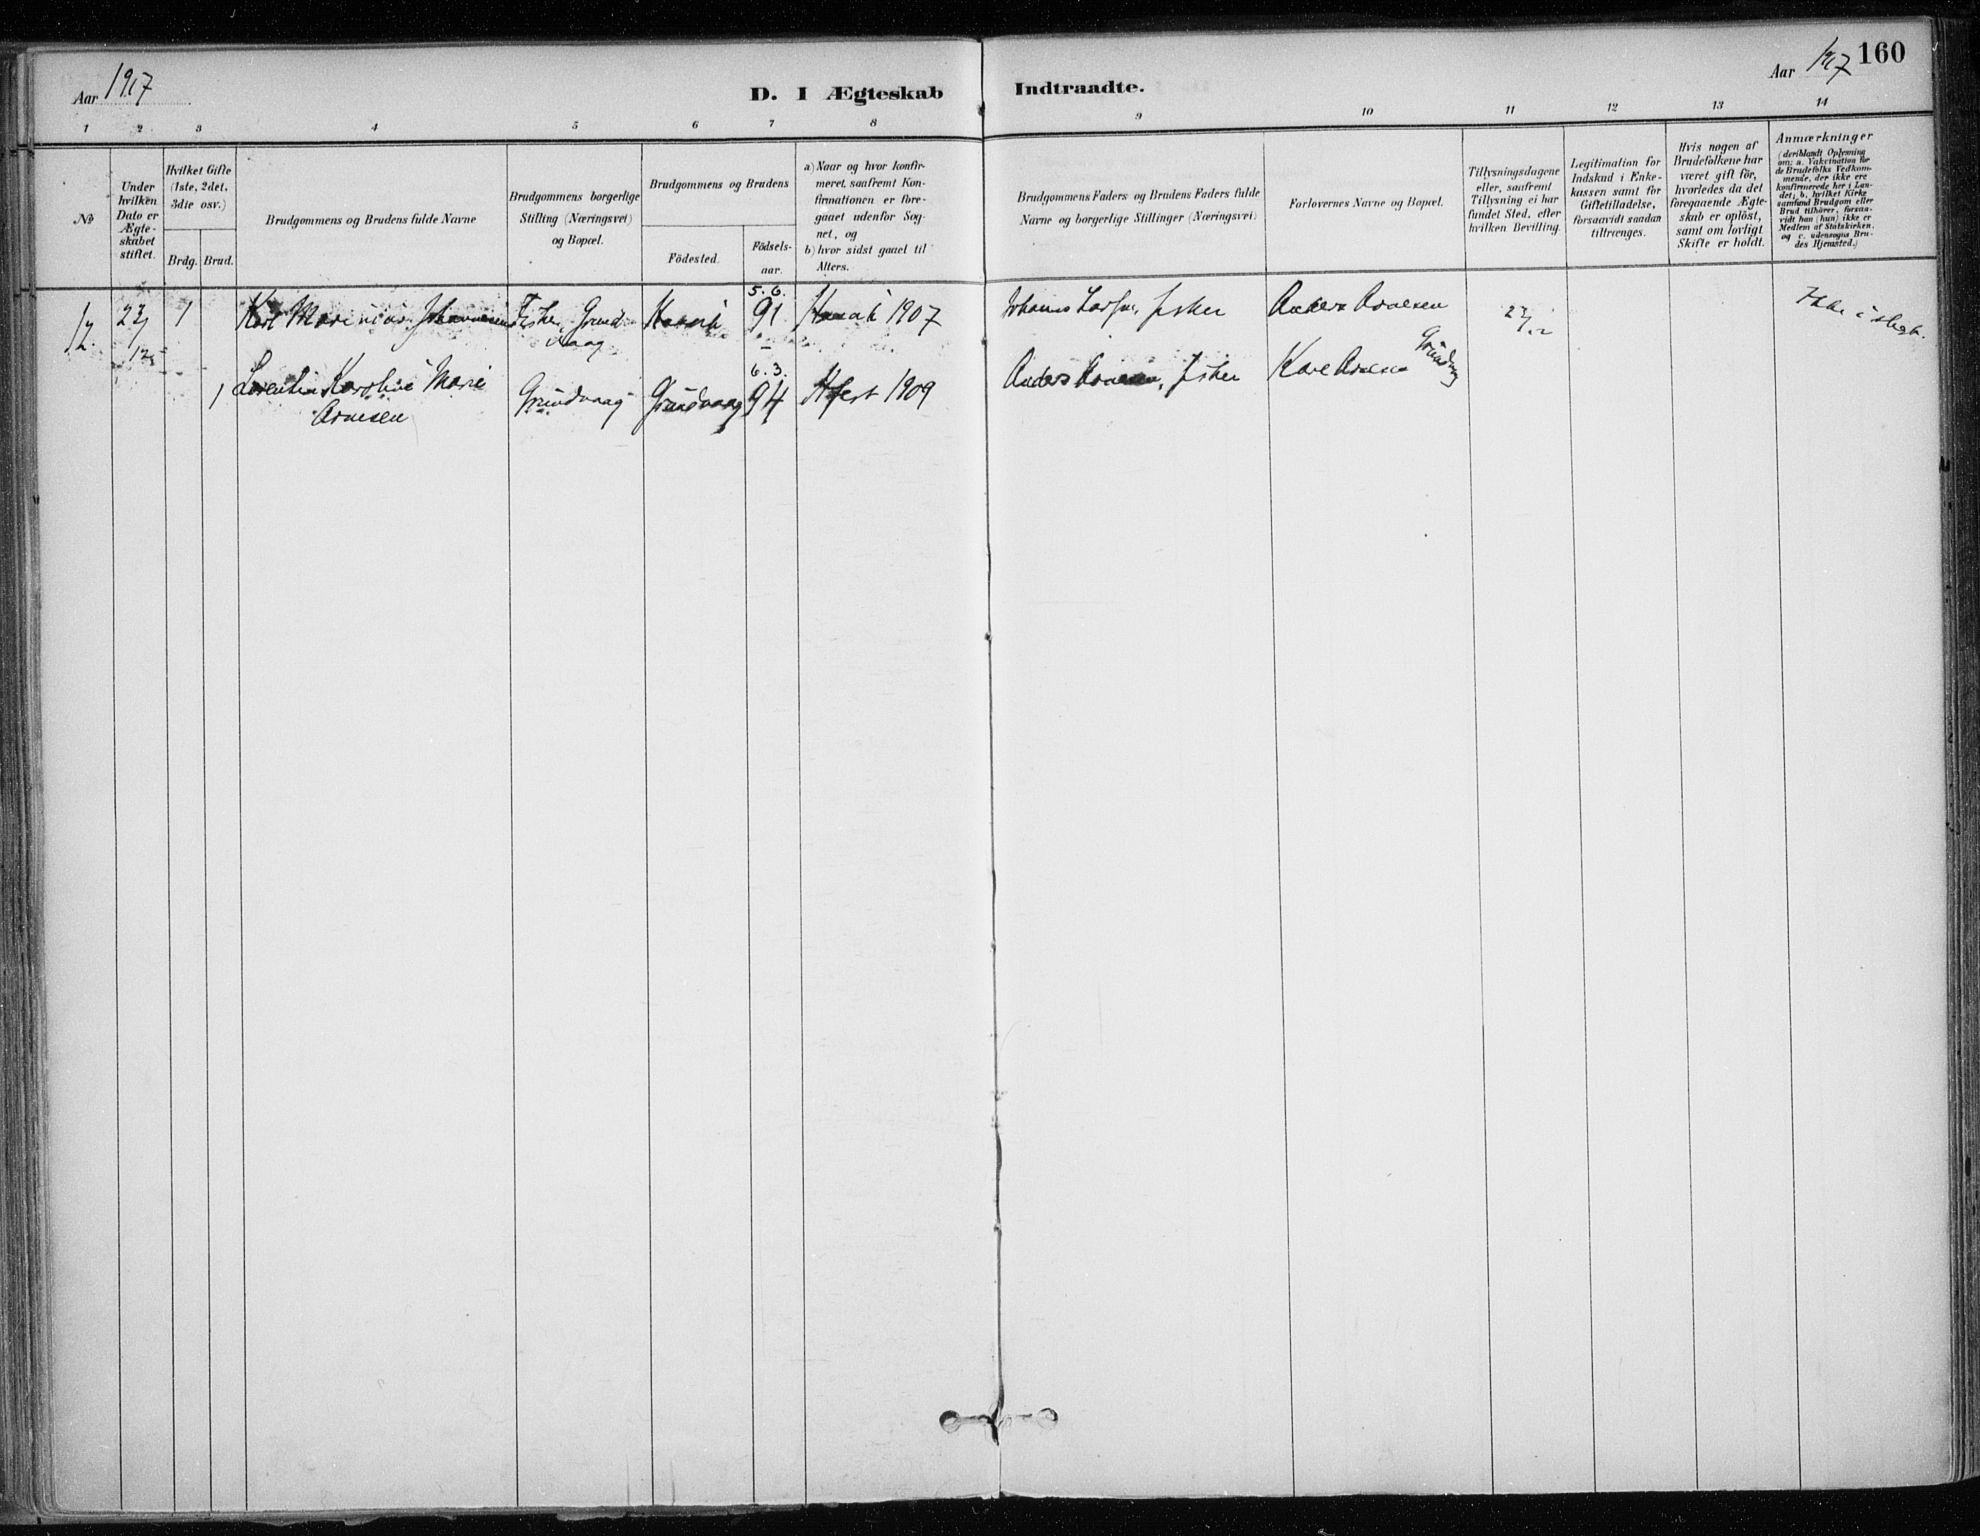 Aar 1917
D. I Ægteskab
Indtraadte.
Aar 1917 160
1 2 3 4 5 6 7 8 9 10 11 12 13 14
№
Under
hvilken
Dato er
Ægte-
skabet
stiftet.
Hvilket Gifte
(1ste, 2det,
3die osv.)
Brdg. Brud.
Brudgommens og Brudens fulde Navne
Brudgommens borgerlige
Stilling (Næringsvei)
og Bopæl.
Brudgommens og Brudens
Födested.
Födsels-
aar.
a) Naar og hvor konfir-
meret, saafremt Kon-
firmationen er fore-
gaaet udenfor Sog-
net, og
b) hvor sidst gaaet til
Alters.
Brudgommens Faders og Brudens Faders fulde
Navne og borgerlige Stillinger (Næringsvei)
Forlovernes Navne og Bopæl.
Tillysningsdagene
eller, saafremt
Tillysning ei har
fundet Sted, efter
hvilken Bevilling.
Legitimation for
Indskud i Enke-
kassen samt for
Giftetilladelse,
forsaavidt saadan
tiltrænges.
Hvis nogen af
Brudefolkene har
været gift för,
hvorledes da det
foregaaende Ægte-
skab er oplöst,
samt om lovligt
Skifte er holdt.
Anmærkninger
(deriblandt Oplysning
om: a. Vakcination for
de Brudefolks Vedkom-
mende, der ikke ere
konfirmerede her i Lan-
det; b. hvilket Kirke-
samfund Brudgom eller
Brud tilhörer, forsaa-
vidt han (hun) ikke er
Medlem af Statskirken,
og c. udensogns Bru-
des Hjemsted.)
12. 22/12 1 Karl Marinius Johannesen Fisker, Grund-
vaag
5.6.
91
1907 Johannes Larsen, fisker Anders Arnesen 22/12 Ikke i slegt.
1 Lorentine Karoline Marie
Arnesen
Grundvaag Grundvaag
6.3.
94
1909 Anders Arnesen, fisker Kare Arnesen
Grundvaag